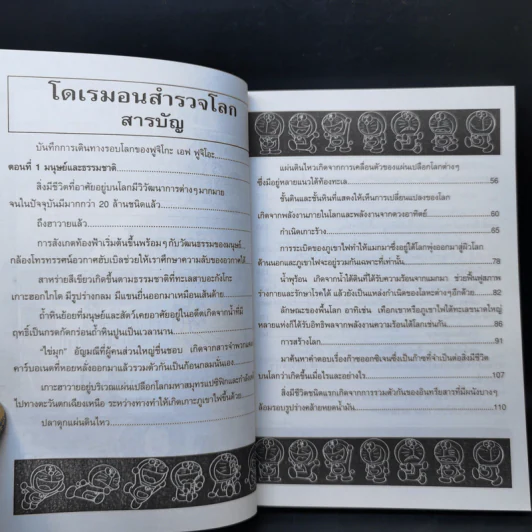 โดเรมอนสำรวจโลก
สารบัญ
บันทึกการเดินทางรอบโลกของฟูจิโกะ เอฟ ฟูจิโอะ
ตอนที่ 1 มนุษย์และธรรมชาติ
สิ่งมีชีวิตที่อาศัยอยู่บนโลกมีวิวัฒนาการต่างๆมากมาย
จนในปัจจุบันมีมากกว่า 20 ล้านชนิดแล้ว
ถึงฮาวายแล้ว
การสังเกตท้องฟ้าเริ่มต้นขึ้นพร้อมๆกับวัฒนธรรมของมนุษย์
กล้องโทรทรรศน์อวกาศฮับเบิลช่วยให้เราศึกษาความลับของอวกาศได้
สาหร่ายสีเขียวเกิดขึ้นตามธรรมชาติที่ทะเลสาบอะกังโกะ
เกาะฮอกไกโด มีรูปร่างกลม มีแขนยื่นออกมาเหมือนเส้นด้าย
ถ้ำหินย้อยที่มนุษย์และสัตว์เคยอาศัยอยู่ในอดีตเกิดจากน้ำที่มี
ฤทธิ์เป็นกรดกัดกร่อนถ้ำหินปูนเป็นเวลานาน
"ไข่มุก" อัญมณีที่ผู้คนส่วนใหญ่ชื่นชอบ เกิดจากสารจำพวก
คาร์บอเนตที่หอยหลั่งออกมาแล้วรวมตัวกันเป็นก้อนกลมนั่นเอง
เกาะฮาวายอยู่บริเวณแผ่นเปลือกโลกมหาสมุทรแปซิฟิกและกำลัง
ไปทางตะวันตกเฉียงเหนือ ระหว่างทางทำให้เกิดเกาะภูเขาไฟขึ้นด้วย
ปลาดุกแผ่นดินไหว
แผ่นดินไหวเกิดจากการเคลื่อนตัวของแผ่นเปลือกโลกต่างๆ
ซึ่งมีอยู่หลายแนวใต้ท้องทะเล 56
ชั้นดินและชั้นหินที่แสดงให้เห็นการเปลี่ยนแปลงของโลก
เกิดจากพลังงานภายในโลกและพลังงานจากดวงอาทิตย์ 60
กำเนิดเกาะร้าง 65
การระเบิดของภูเขาไฟทำให้แมกมาซึ่งอยู่ใต้โลกพุ่งออกมาสู่ผิวโลก
ด้านนอกและภูเขาไฟจะอยู่รวมกันเฉพาะที่เท่านั้น 78
น้ำพุร้อน เกิดจากน้ำใต้ดินที่ได้รับความร้อนจากแมกมา ช่วยฟื้นฟูสภาพ
ร่างกายและรักษาโรคได้ แล้วยังเป็นแหล่งกำเนิดของโลหะต่างๆอีกด้วย 82
ลักษณะของพื้นโลก อาทิเช่น เทือกเขาหรือภูเขาไฟใต้ทะเลขนาดใหญ่
หลายแห่งก็ได้รับอิทธิพลจากพลังงานความร้อนใต้โลกเช่นกัน 86
การสร้างโลก 91
มาค้นหาคำตอบเรื่องก๊าซออกซิเจนซึ่งเป็นก๊าซที่จำเป็นต่อสิ่งมีชีวิต
บนโลกว่าเกิดขึ้นเมื่อไรและอย่างไร 107
สิ่งมีชีวิตชนิดแรกเกิดจากการรวมตัวกันของอินทรียสารที่มีผนังบางๆ
ล้อมรอบรูปร่างคล้ายหยดน้ำมัน 110